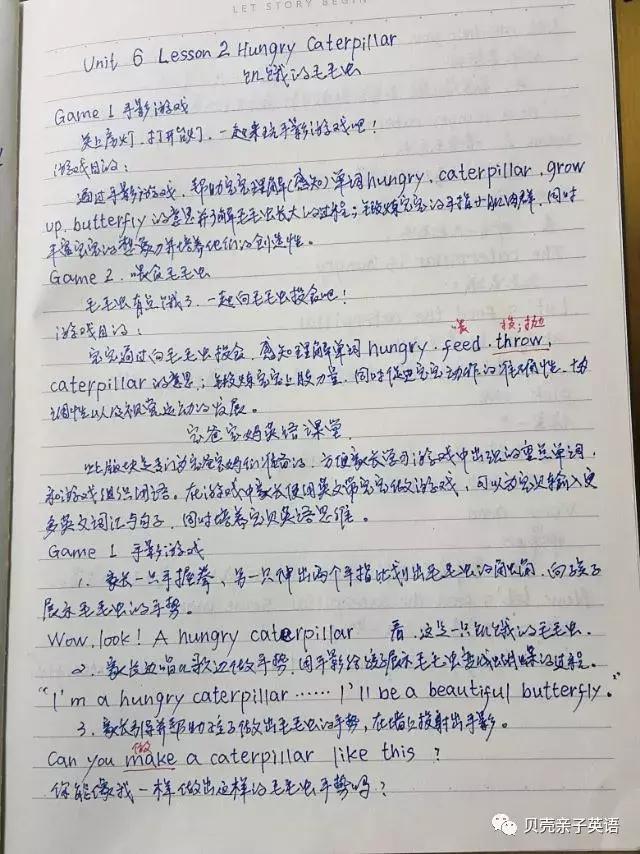 LET STORY BEGIN
Unit 6 Lesson 2 Hungry Caterpillar
饥饿的毛毛虫
Game 1 手影游戏
关上房灯，打开台灯，一起来玩手影游戏吧！
游戏目的：
通过手影游戏，帮助宝宝理解(感知)单词hungry、caterpillar、grow
up、butterfly的意思并了解毛毛虫长大的过程；锻炼宝宝的手指小肌肉群，同时
丰富宝宝的想象力并培养他们的创造性。
Game 2. 喂食毛毛虫
毛毛虫有点饿了，一起向毛毛虫投食吧！
游戏目的：
喂 投；抛
宝宝通过向毛毛虫投食，感知理解单词hungry、feed、throw、
caterpillar的意思；锻炼宝宝上肢力量，同时促进宝宝动作的准确性、协
调性以及视觉运动的发展。
宝爸宝妈英语课堂
此版块是专门为宝爸宝妈们准备的，方便家长学习游戏中出现的重点单词
和游戏组织用语。在游戏中家长使用英文带宝宝做游戏，可以为宝贝输入更
多英文词汇与句子，同时培养宝贝英语思维。
Game 1 手影游戏
1. 家长一只手握拳，另一只伸出两个手指比划出毛毛虫的触角，向孩子
展示毛毛虫的手势。
Wow, look! A hungry caterpillar 看，这是一只饥饿的毛毛虫.
2. 家长边唱儿歌边做手势，用手影给孩子展示毛毛虫变成蝴蝶的过程。
"I'm a hungry caterpillar …… I'll be a beautiful butterfly."
3. 家长引导并帮助孩子做出毛毛虫的手势，在墙上投射出手影。
做
Can you make a caterpillar like this ?
你能像我一样做出这样的毛毛虫手势吗？
贝壳亲子英语